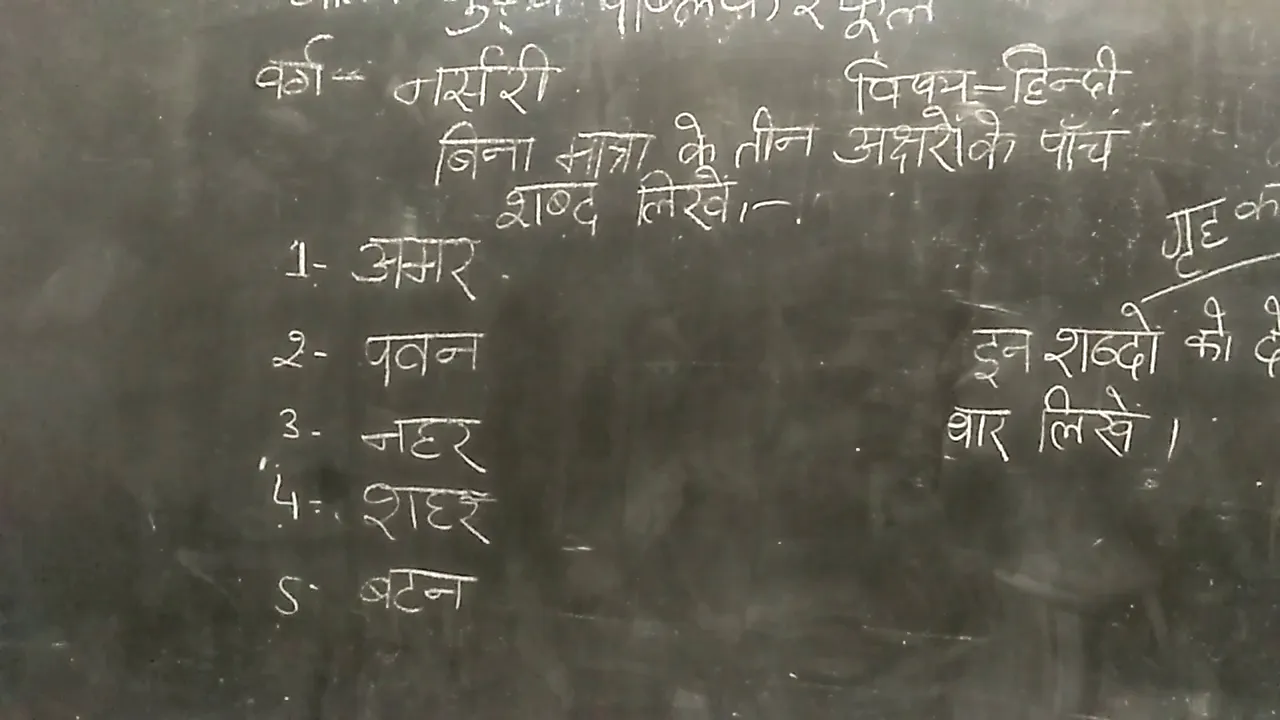 पब्लिक स्कूल
वर्ग - नर्सरी विषय - हिन्दी
बिना मात्रा के तीन अक्षरों के पाँच
शब्द लिखें।-
1- अमर
२- पवन
3- नहर
4- शहर
5- बटन
गृह
इन शब्दों को
बार लिखें।